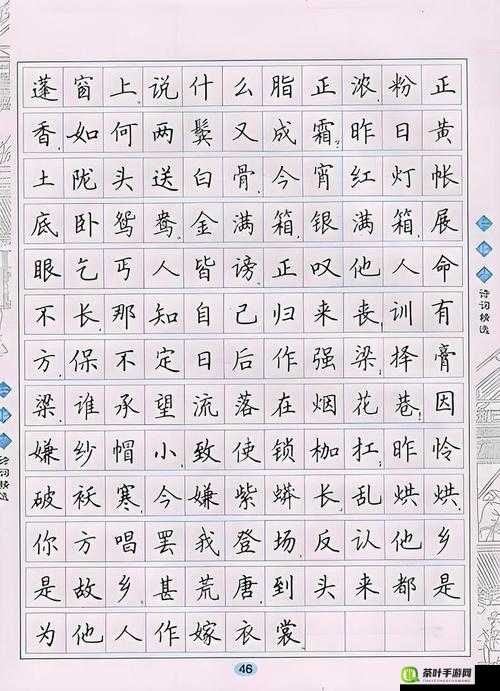 蓬窗上说什么脂正浓粉正
香如何两鬓又成霜昨日黄
土陇头送白骨今宵红灯帐
底卧鸳鸯金满箱银满箱展
眼乞丐人皆谤正叹他人命
不长那知自己归来丧训有
方保不定日后作强梁择膏
梁谁承望流落在烟花巷因
嫌纱帽小致使锁枷扛昨怜
破袄寒今嫌紫蟒长乱烘烘
你方唱罢我登场反认他乡
是故乡甚荒唐到头来都是
为他人作嫁衣裳
诗词精选
诗词精选
46
茶叶手游网